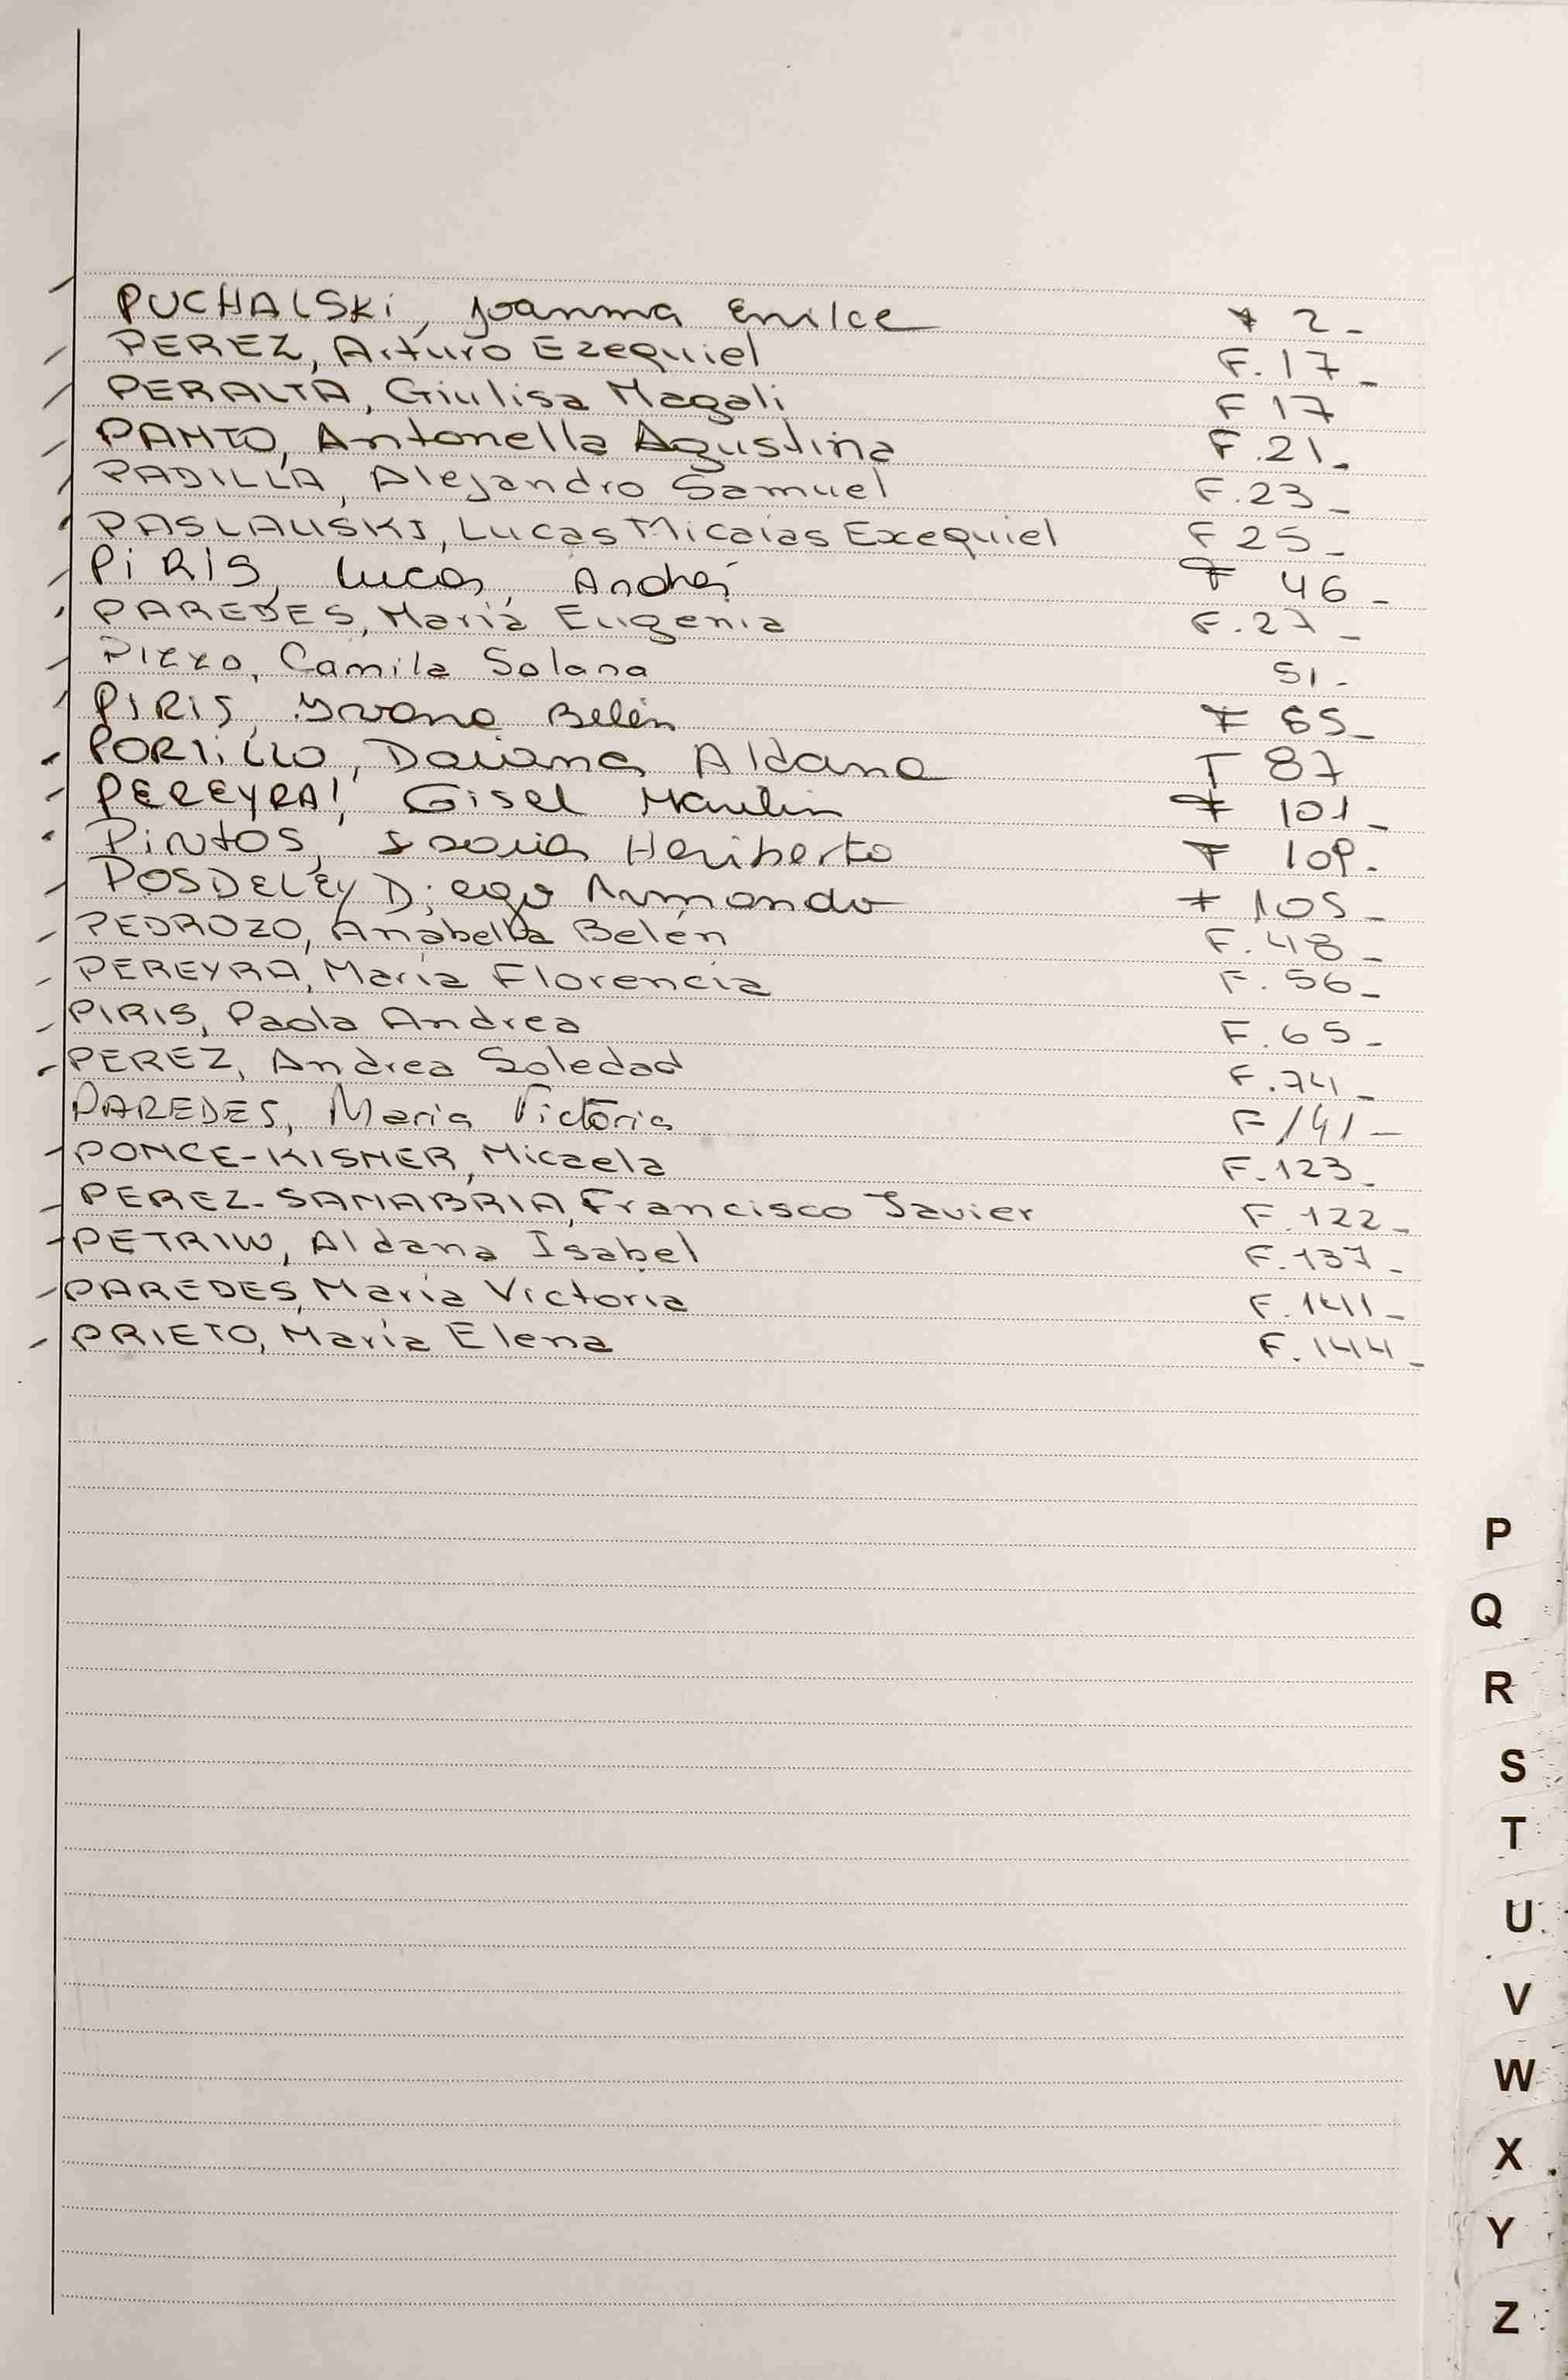 PUCHALSKi, Joanna Emilce F 2-
PEREZ, Arturo Ezequiel F.17-
PERALTA, Giulisa Magali F 17
PANTO, Antonella Agustina F.21-
PADILLA, Alejandro Samuel F.23-
PASLAUSKI, Lucas Micaías Exequiel F 25-
PiRiS, Lucas, Andrés F 46-
PAREDES, María Eugenia F.27-
Pizzo, Camila Solana 51-
PIRIS, Ivana Belén F 65-
PORTiLLO, Daiana Aldana F 87
PEREYRA, Gisel F 101-
PiNtOS, Heriberto F 109.
POSDELEY Diego Armando F 105-
PEDROZO, Anabella Belén F.48-
PEREYRA, María Florencia F.56-
PIRIS, Paola Andrea F.65-
PEREZ, Andrea Soledad F.74-
PAREDES, Maria Victoria F/41-
PONCE-KISNER, Micaela F.123-
PEREZ-SANABRIA, Francisco Javier F.122-
PETRIW, Aldana Isabel F.137-
PAREDES, María Victoria F.141-
PRIETO, María Elena F.144-
P
Q
R
S
T
U
V
W
X
Y
Z